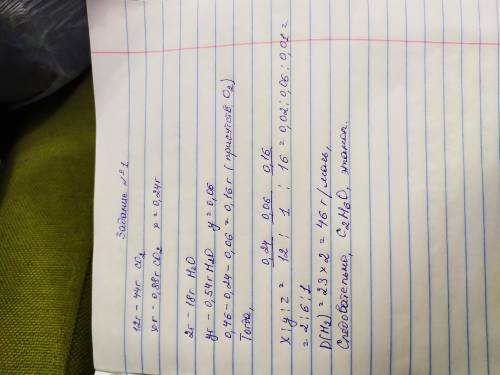 Задание №1.
12г - 44г CO2
xг - 0,88г CO2 x = 0,24г
2г - 18г H2O
yг - 0,54г H2O y = 0,06
0,46 - 0,24 - 0,06 = 0,16г (присутств O2)
Тогда,
0,24 0,06 0,16
x : y : z = 12 : 1 : 16 = 0,02 : 0,06 : 0,01 =
= 2 : 6 : 1
D(H2) = 23 × 2 = 46 г/моль,
Следовательно, C2H6O, этанол.